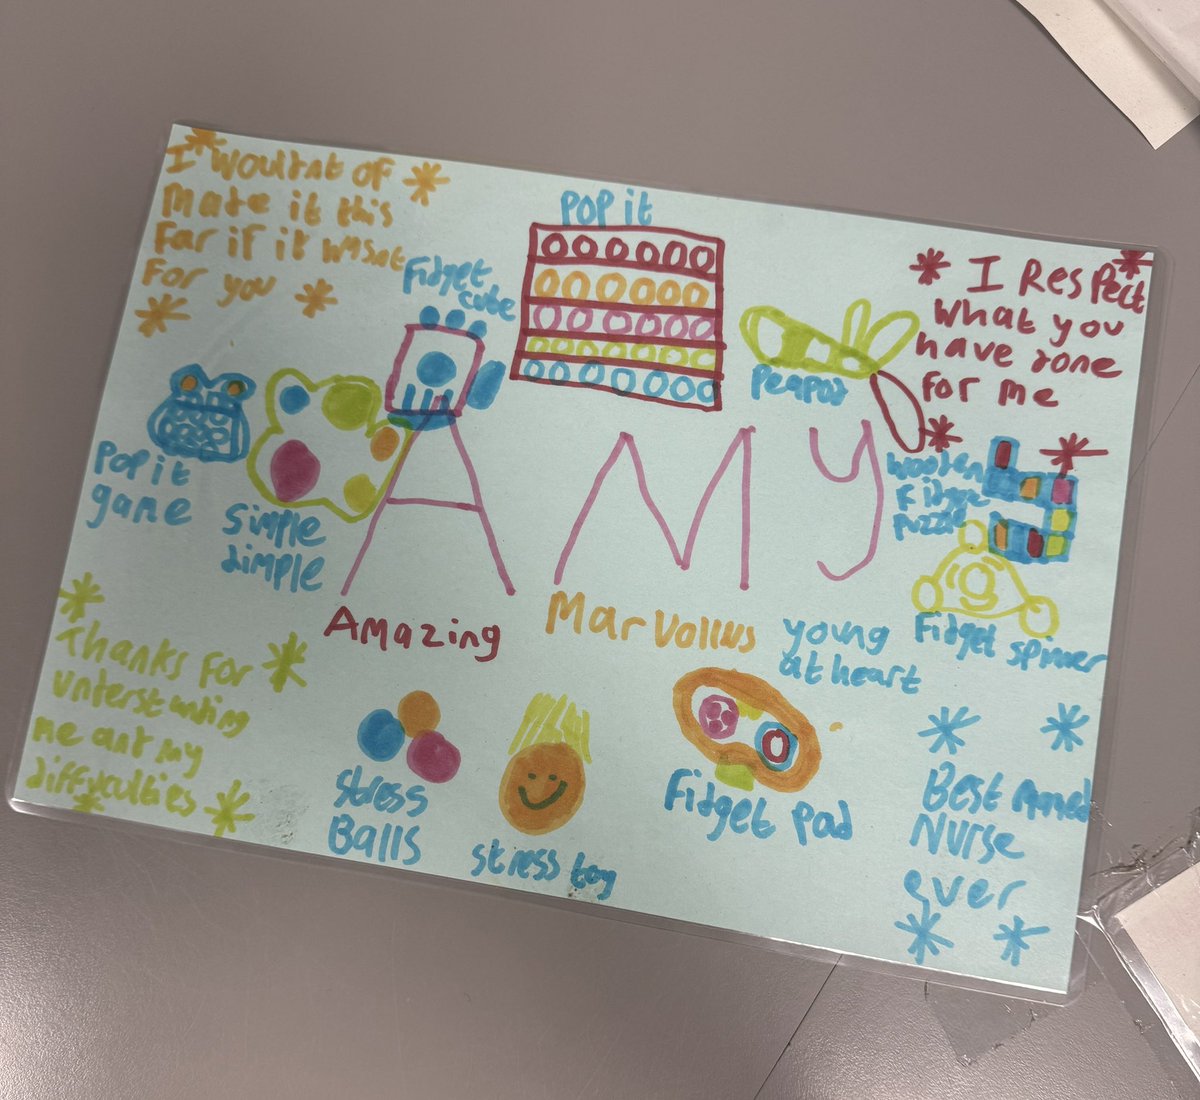 I wouldnt of
made it this
far if it wasnt
for you
Pop it
Fidget
cube
I Respect
what you
have done
for me
Peapod
Pop it
game
Simple
dimple
wooden
Fidget
puzzle
AMY
Fidget spinner
Amazing
Marvollus
young
at heart
Thanks for
understanding
me and my
difficulties
stress
Balls
stress toy
Fidget pad
Best
Nurse
ever